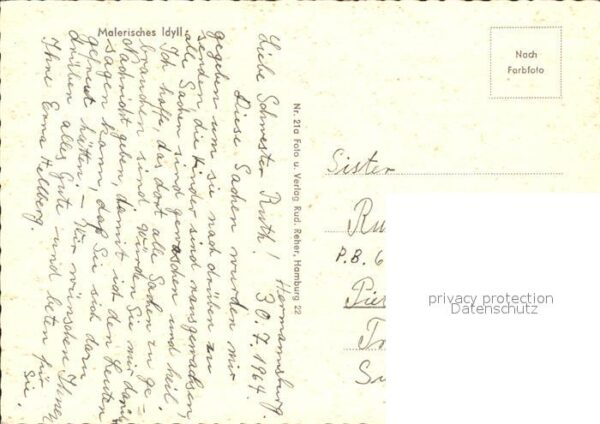 Malerisches Idyll
Hermannsburg.
30.7.1964.
Liebe Schwester Ruth!
Diese Sachen wurden mir
gegeben um sie nach drüben zu
senden, die Kinder sind rausgewachsen,
alle Sachen sind gewaschen und heil.
Ich hoffe, das dort alle Sachen zu ge-
brauchen sind. Würden Sie mir darüber
Nachricht geben, damit ich den Leuten
sagen kann, daß Sie sich darü
gefreut hätten. – Wir wünschen Ihnen
drüben alles Gute und beten für
Sie.
Ihre Erna Hellberg.
Nr. 21a Foto u. Verlag Rud. Reher, Hamburg 22
Nach
Farbfoto
Sister
Ru
P.B. 6
Pie
Tr
privacy protection
Datenschutz